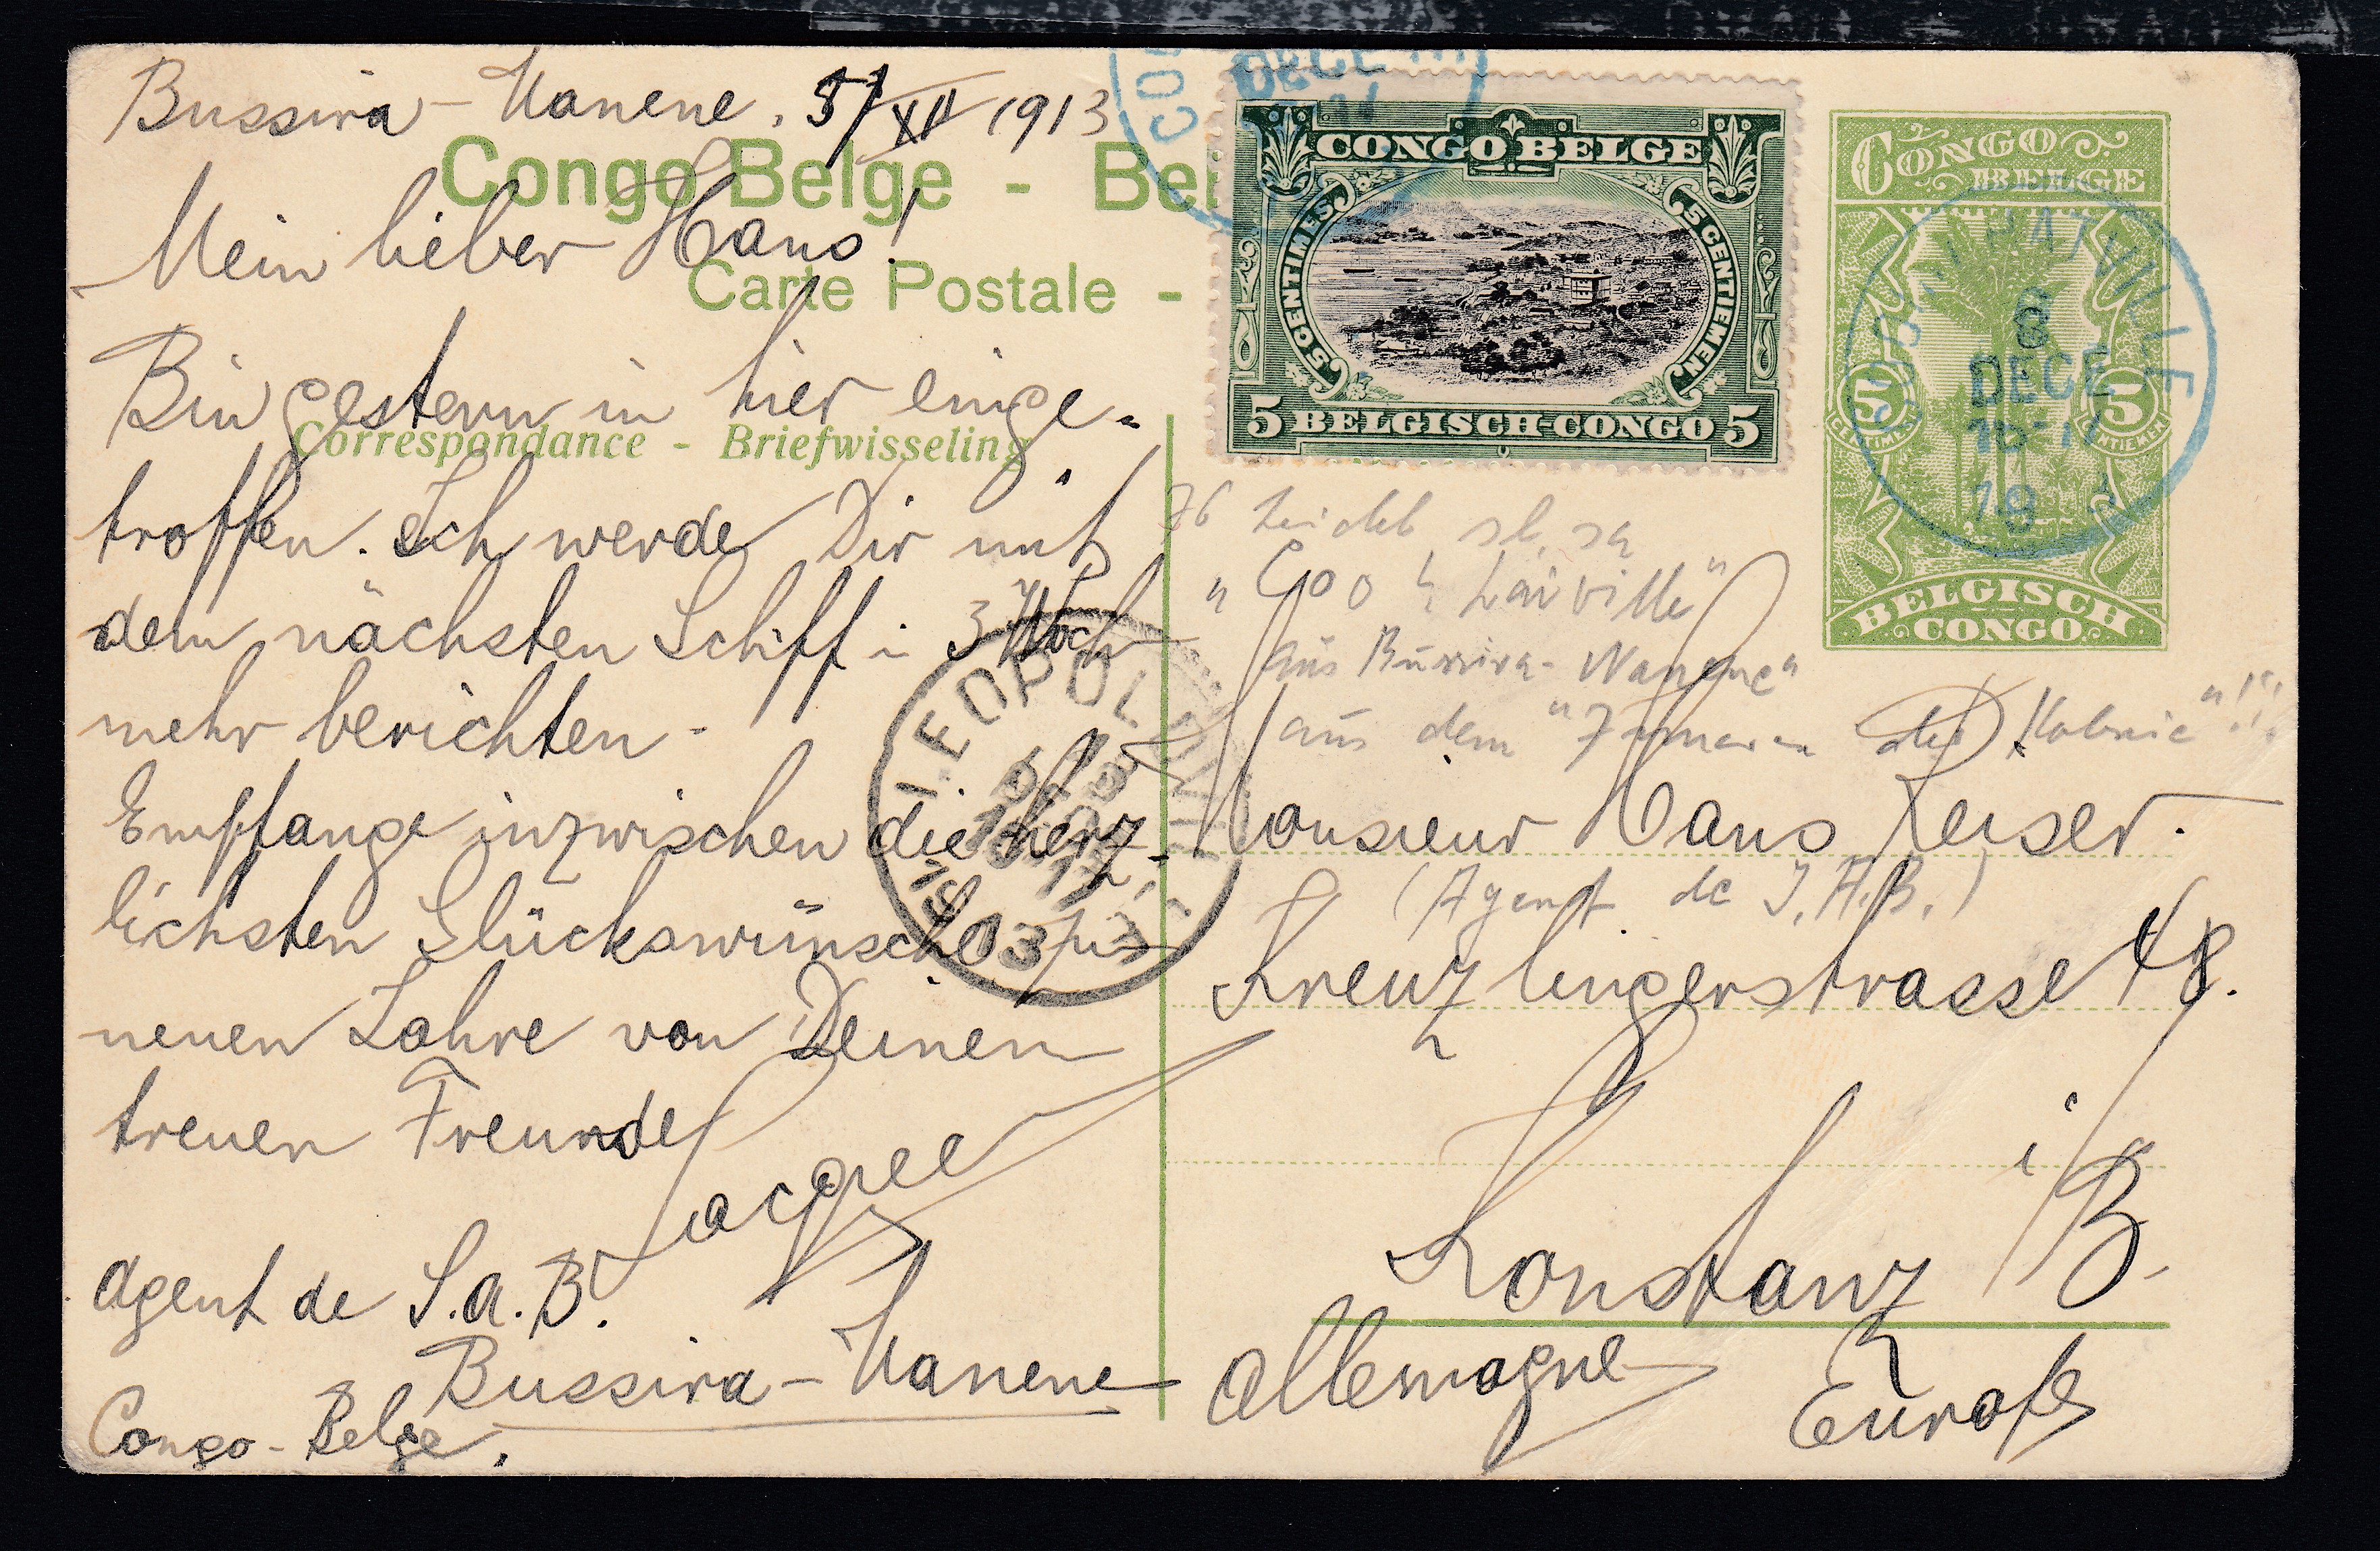 Bussira-Manene. 5/XII 1913
Congo Belge - Bel
Mein lieber Hans!
Carte Postale -
Bin gestern in hier einge-
Correspondance - Briefwisseling
troffen. Ich werde Dir mit
dem nächsten Schiff i 3 Woch
mehr berichten -
Empfange inzwischen die herz-
lichsten Glückswünsche zu
neuen Jahre von Deinem
treuen Freunde
Jacques
agent de S.a.B.
Bussira-Manene
Congo-Belge.
CONGO BELGE
5 CENTIMES
5 CENTIEMEN
5 BELGISCH-CONGO 5
CONGO BELGE
5 CENTIMES
5 CENTIEMEN
BELGISCH CONGO
COQUILHATVILLE
6
DECE
16-17
19
DECE
LEOPOLDVILLE
aus Bussira-Manene"
aus dem "Inneren der Kolonie"!!
Monsieur Hans Keiser.
(Agent de S.A.B.)
Kreuzlingerstrasse 48.
Konstanz i/B.
Allemagne
Europe